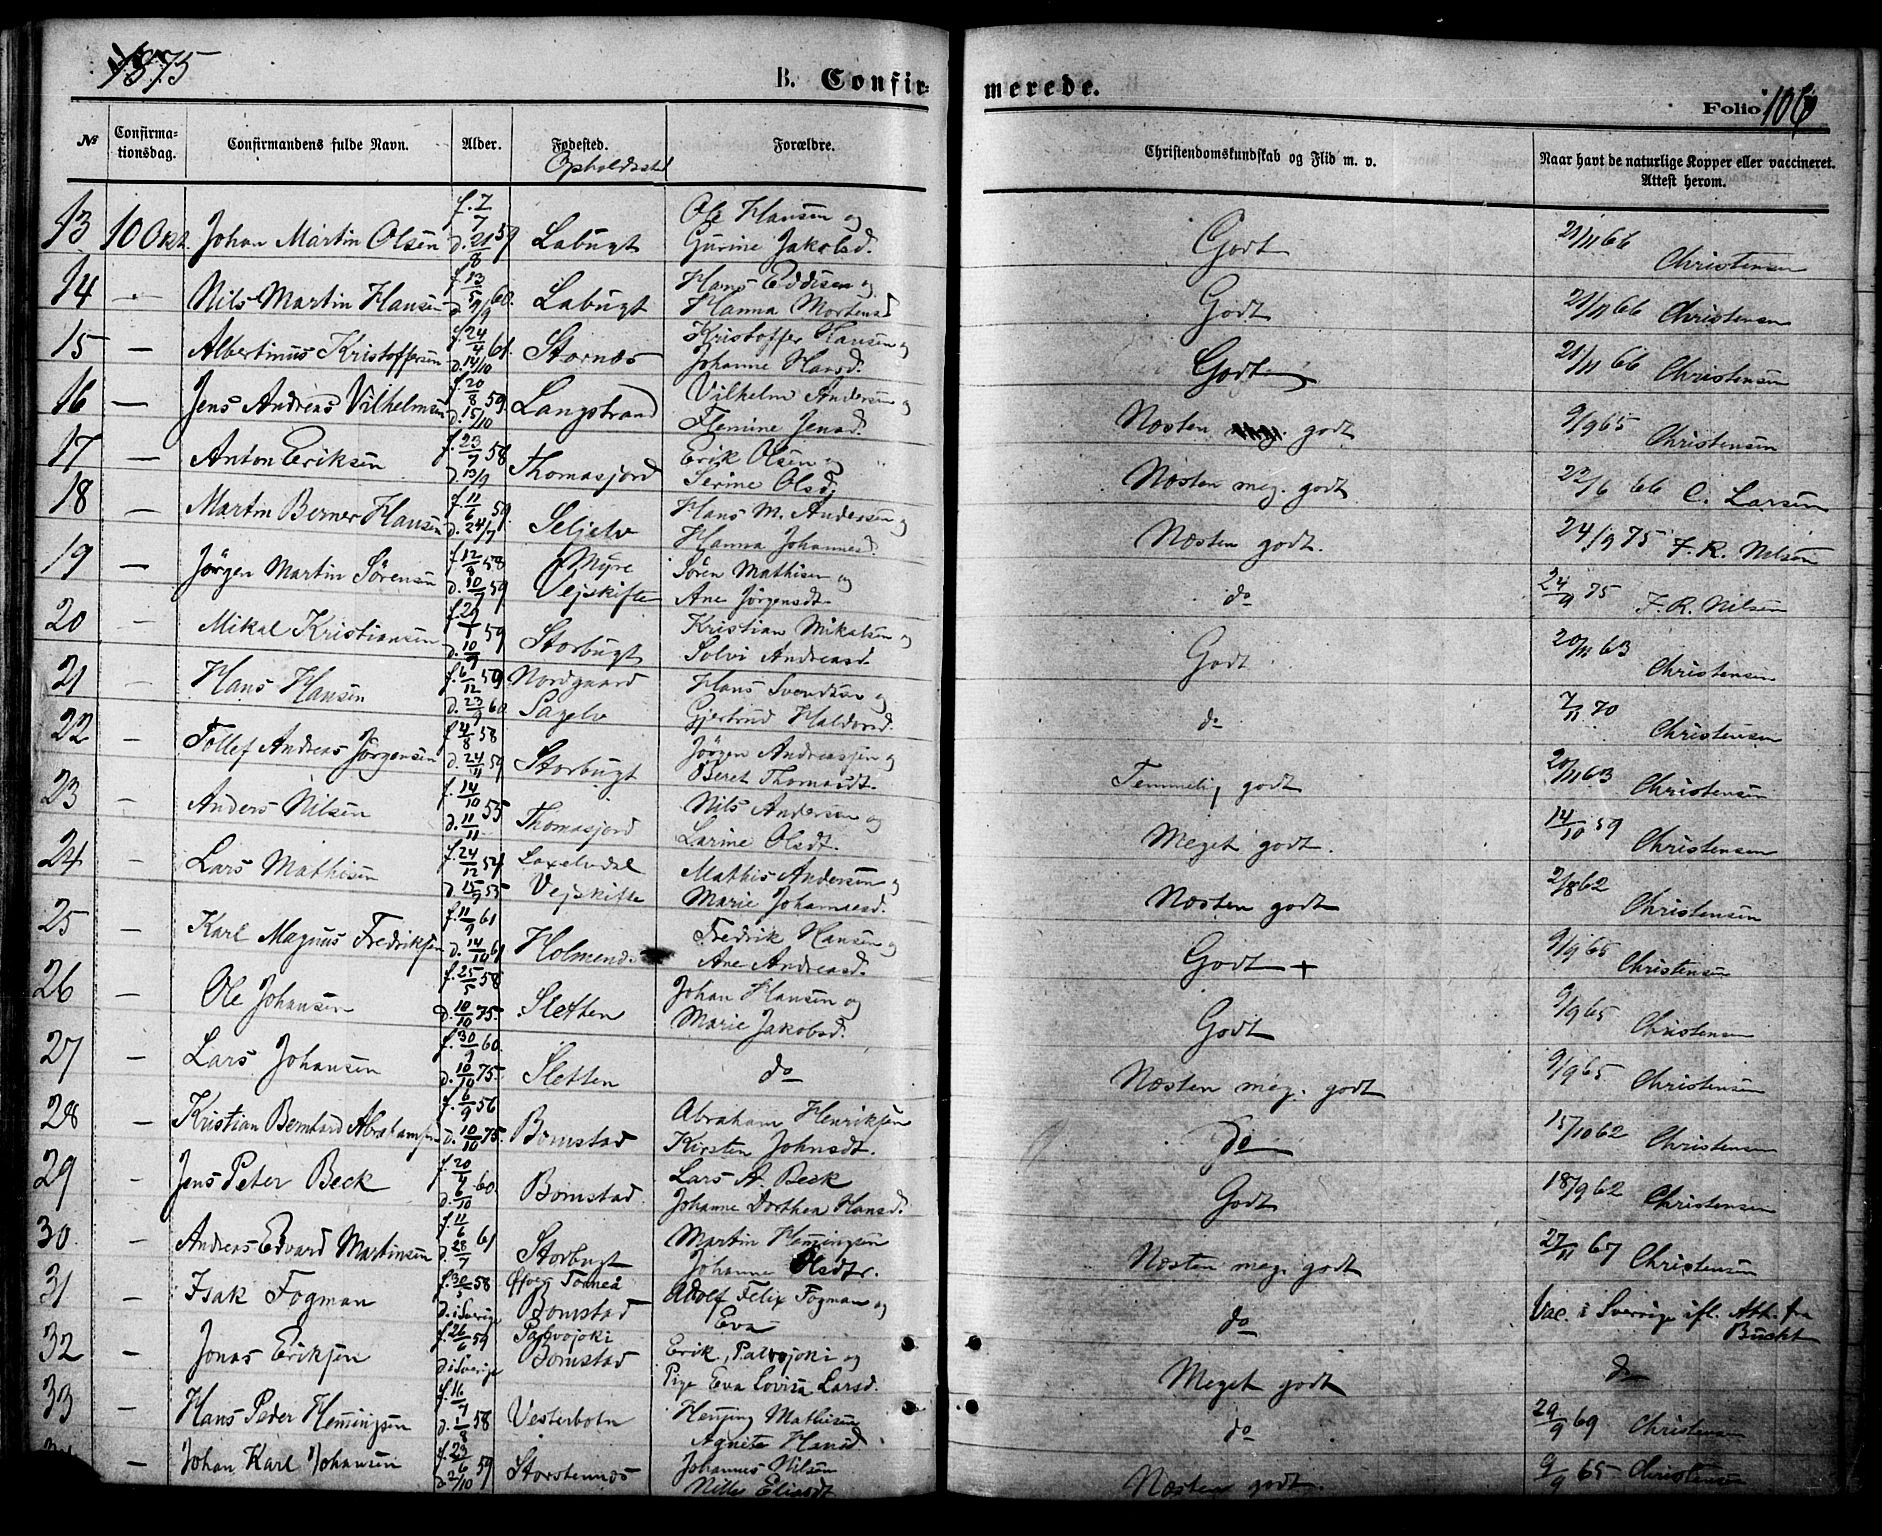 1875
B. Confirmerede.
Folio 106
№ Confirmationsdag. Confirmandens fulde Navn. Alder. Fødested. Opholdssted Forældre. Christendomskundskab og Flid m. v. Naar havt de naturlige Kopper eller vaccineret. Attest herom.
13 10 Okt. Johan Martin Olsen f. 2/7 59 d. 21/8 Labugt Ole Hansen og Gurine Jakobsd. Godt 21/11 66 Christensen
14 — Nils Martin Hansen f. 13/5 60. d. 9/9 Labugt Hans Eddisen og Hanna Mortensd Godt 21/11 66 Christensen
15 — Albertinus Kristoffersen f. 24/4 61. d. 14/10 Stornæs Kristoffer Hansen og Johanne Hansd. Godt 21/11 66 Christensen
16 — Jens Andreas Vilhelmsen f. 20/8 59. d. 15/10 Langstrand Vilhelm Andersen og Flemine Jensd. Næsten godt 9/9 65 Christensen
17 — Anton Eriksen f. 23/7 58 d. 13/9 Thomasjord Erik Olsen og Serine Olsd. Næsten meg. godt 22/6 66 C. Larsen
18 — Martin Berner Hansen f. 11/6 59. d. 24/7 Seljelv Hans M. Andersen og Hanna Johannesd. Næsten godt. 24/9 75 F. R. Nilsen
19 — Jörgen Martin Sörensen f. 12/8 58 d. 10/7 59 Myre Vejskifte Sören Mathisen og Ane Jörgensdt. do 24/9 75 F. R. Nilsen
20 — Mikal Kristiansen f. 29/1 59 d. 10/9 Storbugt Kristian Mikalsen og Solvi Andreasd. Godt 20/11 63 Christensen
21 — Hans Hansen f. 6/12 59 d. 23/9 60 Nordgaard Sagelv Hans Svendsen og Gjertrud Haldorsd. do 7/11 70 Christensen
22 — Tollef Andreas Jörgensen f. 4/8 58 d. 24/11 59 Storbugt Jörgen Andreassen og Beret Thomasdt. Temmelig godt 20/11 63 Christensen
23 — Anders Nilsen f. 14/10 55 d. 11/11 Thomasjord Nils Andersen og Larine Olsdt. Meget godt. 14/10 59 Christensen
24 — Lars Mathisen f. 24/12 54 d. 15/9 55 Laxelvdal Vejskifte Mathis Andersen og Marie Johannesd. Næsten godt 2/8 62 Christensen
25 — Karl Magnus Fredriksen f. 11/9 61 d. 14/10 61 Holmend. Fredrik Hansen og Ane Andreasd. Godt + 9/9 65 Christensen
26 — Ole Johansen f. 25/5 58 d. 10/10 75. Sletten Johan Hansen og Marie Jakobsd. Godt 9/9 65 Christensen
27 — Lars Johansen f. 30/9 60. d. 10/10 75. Sletten do Næsten meg. godt 9/9 65 Christensen
28 — Kristian Bernhard Abrahamsen f. 6/9 56 d. 10/10 75. Bomstad Abraham Henriksen Kirsten Johnsdt. do 15/10 62 Christensen
29 — Jens Peter Beck f. 20/4 60. d. 6/10 Bomstad. Lars A. Beck Johanne Dorthea Hansd. Godt 18/9 62 Christensen
30 — Andreas Edvard Martinsen f. 11/6 61 d. 28/7 Storbugt Martin Hemingsen Johanne Olsdtr. Næsten meg. godt 27/11 67 Christensen
31 — Isak Fogman f. 30/5 58 d. i Sverige Torneå Bomstad Adolf Felix Fogman og Eva do Vac. i Sverrige ifl. Att. fra Bucht
32 — Jonas Eriksen f. 26/6 59 d. i Sverige Palvojoki Bomstad Erik Palvojoki og Pige Eva Lovisa Larsd. Meget godt do
33 — Hans Peder Hemingsen f. 16/7 d. 1/8 58 Vesterbotn Heming Mathisen Agnite Hansd do 29/9 69 Christensen
— Johan Karl Johansen f. 23/6 59 d. 2/10 Storstennæs Johannes Nilsen Nille Eliasdt Næsten godt. 9/9 65 Christensen